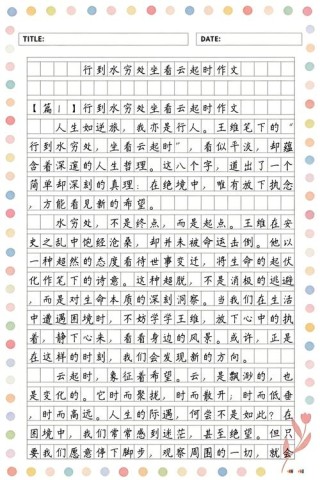 TITLE:
DATE:
行到水穷处坐看云起时作文
【篇1】行到水穷处坐看云起时作文
人生如逆旅，我亦是行人。王维笔下的“
行到水穷处，坐看云起时”，看似平淡，却蕴
含着深邃的人生哲理。这八个字，道出了一个
简单却深刻的真理：在绝境中，唯有放下执念
，方能看见新的希望。
水穷处，不是终点，而是起点。王维在安
史之乱中饱经沧桑，却并未被命运击倒。他以
一种超然的态度看待世事变迁，将生命的起伏
化作笔下的诗意。这种超脱，不是消极的逃避
，而是对生命本质的深刻洞察。当我们在生活
中遭遇困境时，不妨学学王维，放下心中的执
着，静下心来，看看身边的风景。或许，正是
在这样的时刻，我们会发现新的方向。
云起时，象征着希望。云，是飘渺的，也
是变化的。它时而聚拢，时而散开；时而低垂
，时而高远。人生的际遇，何尝不是如此？在
困境中，我们常常感到迷茫，甚至绝望。但只
要我们愿意停下脚步，观察周围的一切，就会